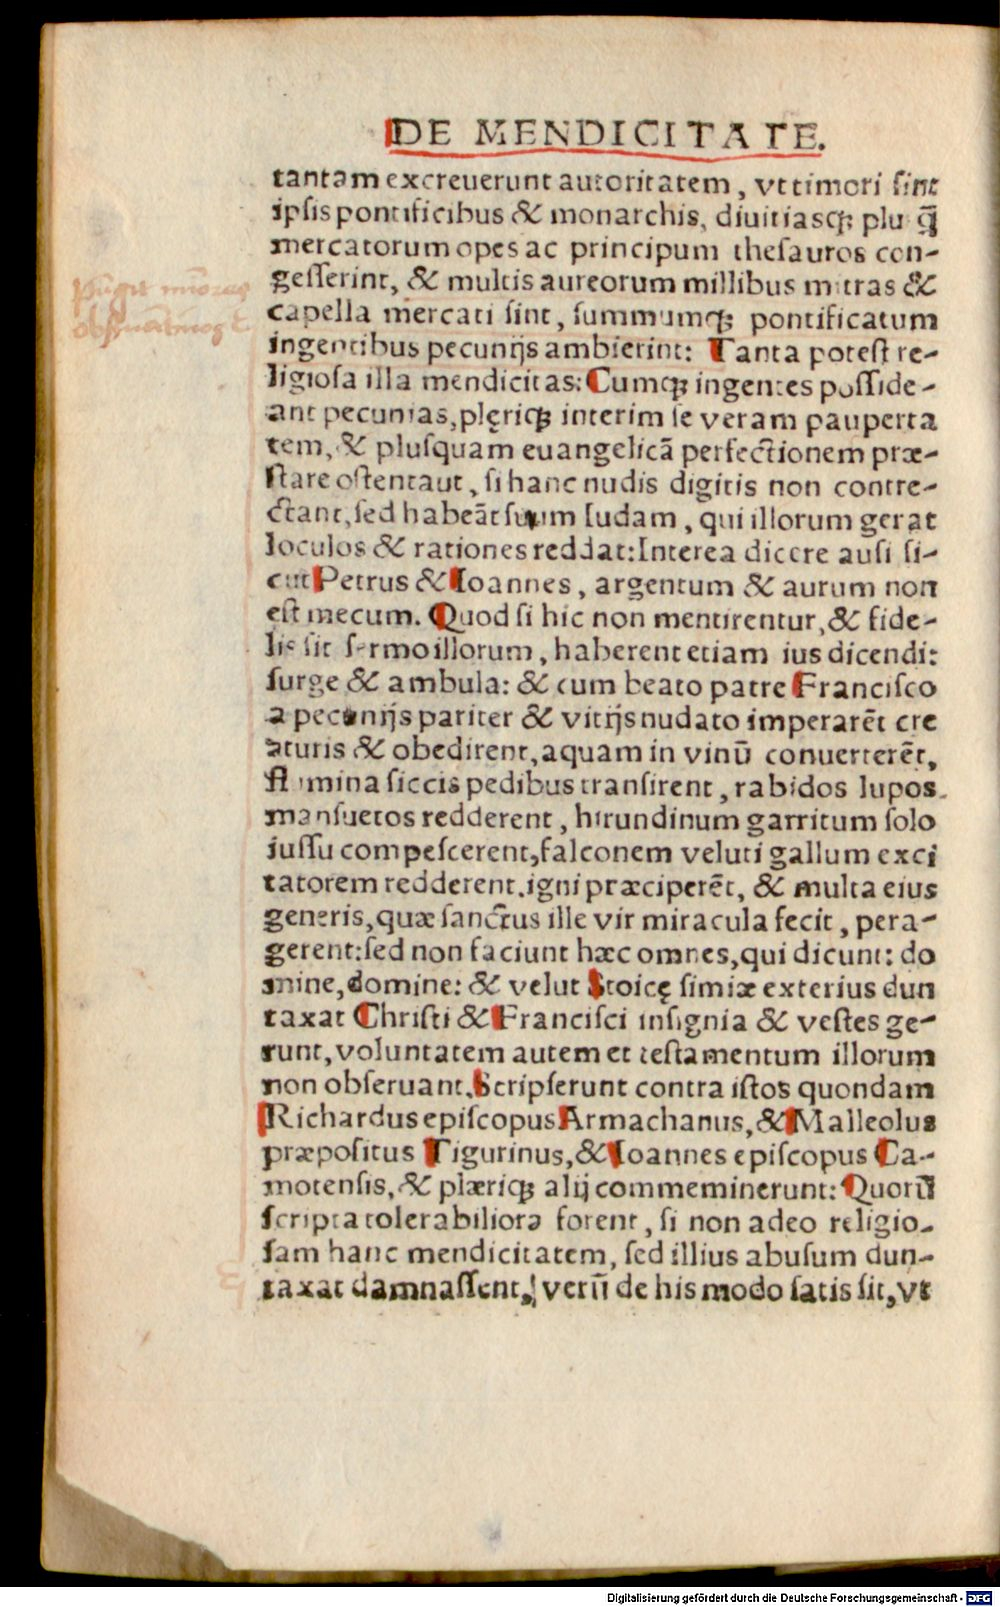 DE MENDICITATE.
tantam excreuerunt autoritatem, vt timori sint
ipsis pontificibus & monarchis, diuitiasq; plu q̃
mercatorum opes ac principum thesauros con-
gesserint, & multis aureorum millibus mitras &
capella mercati sint, summumq; pontificatum
ingentibus pecunijs ambierint: Tanta potest re-
ligiosa illa mendicitas: Cumq; ingentes posside-
ant pecunias, plęriq; interim se veram pauperta
tem, & plusquam euangelicā perfectionem præ-
stare ostentaut, si hanc nudis digitis non contre-
ctant, sed habeāt suum Iudam, qui illorum gerat
loculos & rationes reddat: Interea dicere ausi si-
cut Petrus & Ioannes, argentum & aurum non
est mecum. Quod si hic non mentirentur, & fide-
lis sit sermo illorum, haberent etiam ius dicendi:
surge & ambula: & cum beato patre Francisco
a pecunijs pariter & vitijs nudato imperarēt cre
aturis & obedirent, aquam in vinū conuerterēt,
flumina siccis pedibus transirent, rabidos lupos
mansuetos redderent, hirundinum garritum solo
iussu compescerent, falconem veluti gallum exci
tatorem redderent. igni præciperēt, & multa eius
generis, quæ sanctus ille vir miracula fecit, pera-
gerent: sed non faciunt hæc omnes, qui dicunt: do
mine, domine: & velut Stoicę simiæ exterius dun
taxat Christi & Francisci insignia & vestes ge-
runt, voluntatem autem et testamentum illorum
non obseruant. Scripserunt contra istos quondam
Richardus episcopus Armachanus, & Malleolus
præpositus Tigurinus, & Ioannes episcopus Ca-
motensis, & plæriq; alij commeminerunt: Quorū
scripta tolerabiliora forent, si non adeo religio-
sam hanc mendicitatem, sed illius abusum dun-
taxat damnassent, verū de his modo satis sit, vt
Digitalisierung gefördert durch die Deutsche Forschungsgemeinschaft - DFG